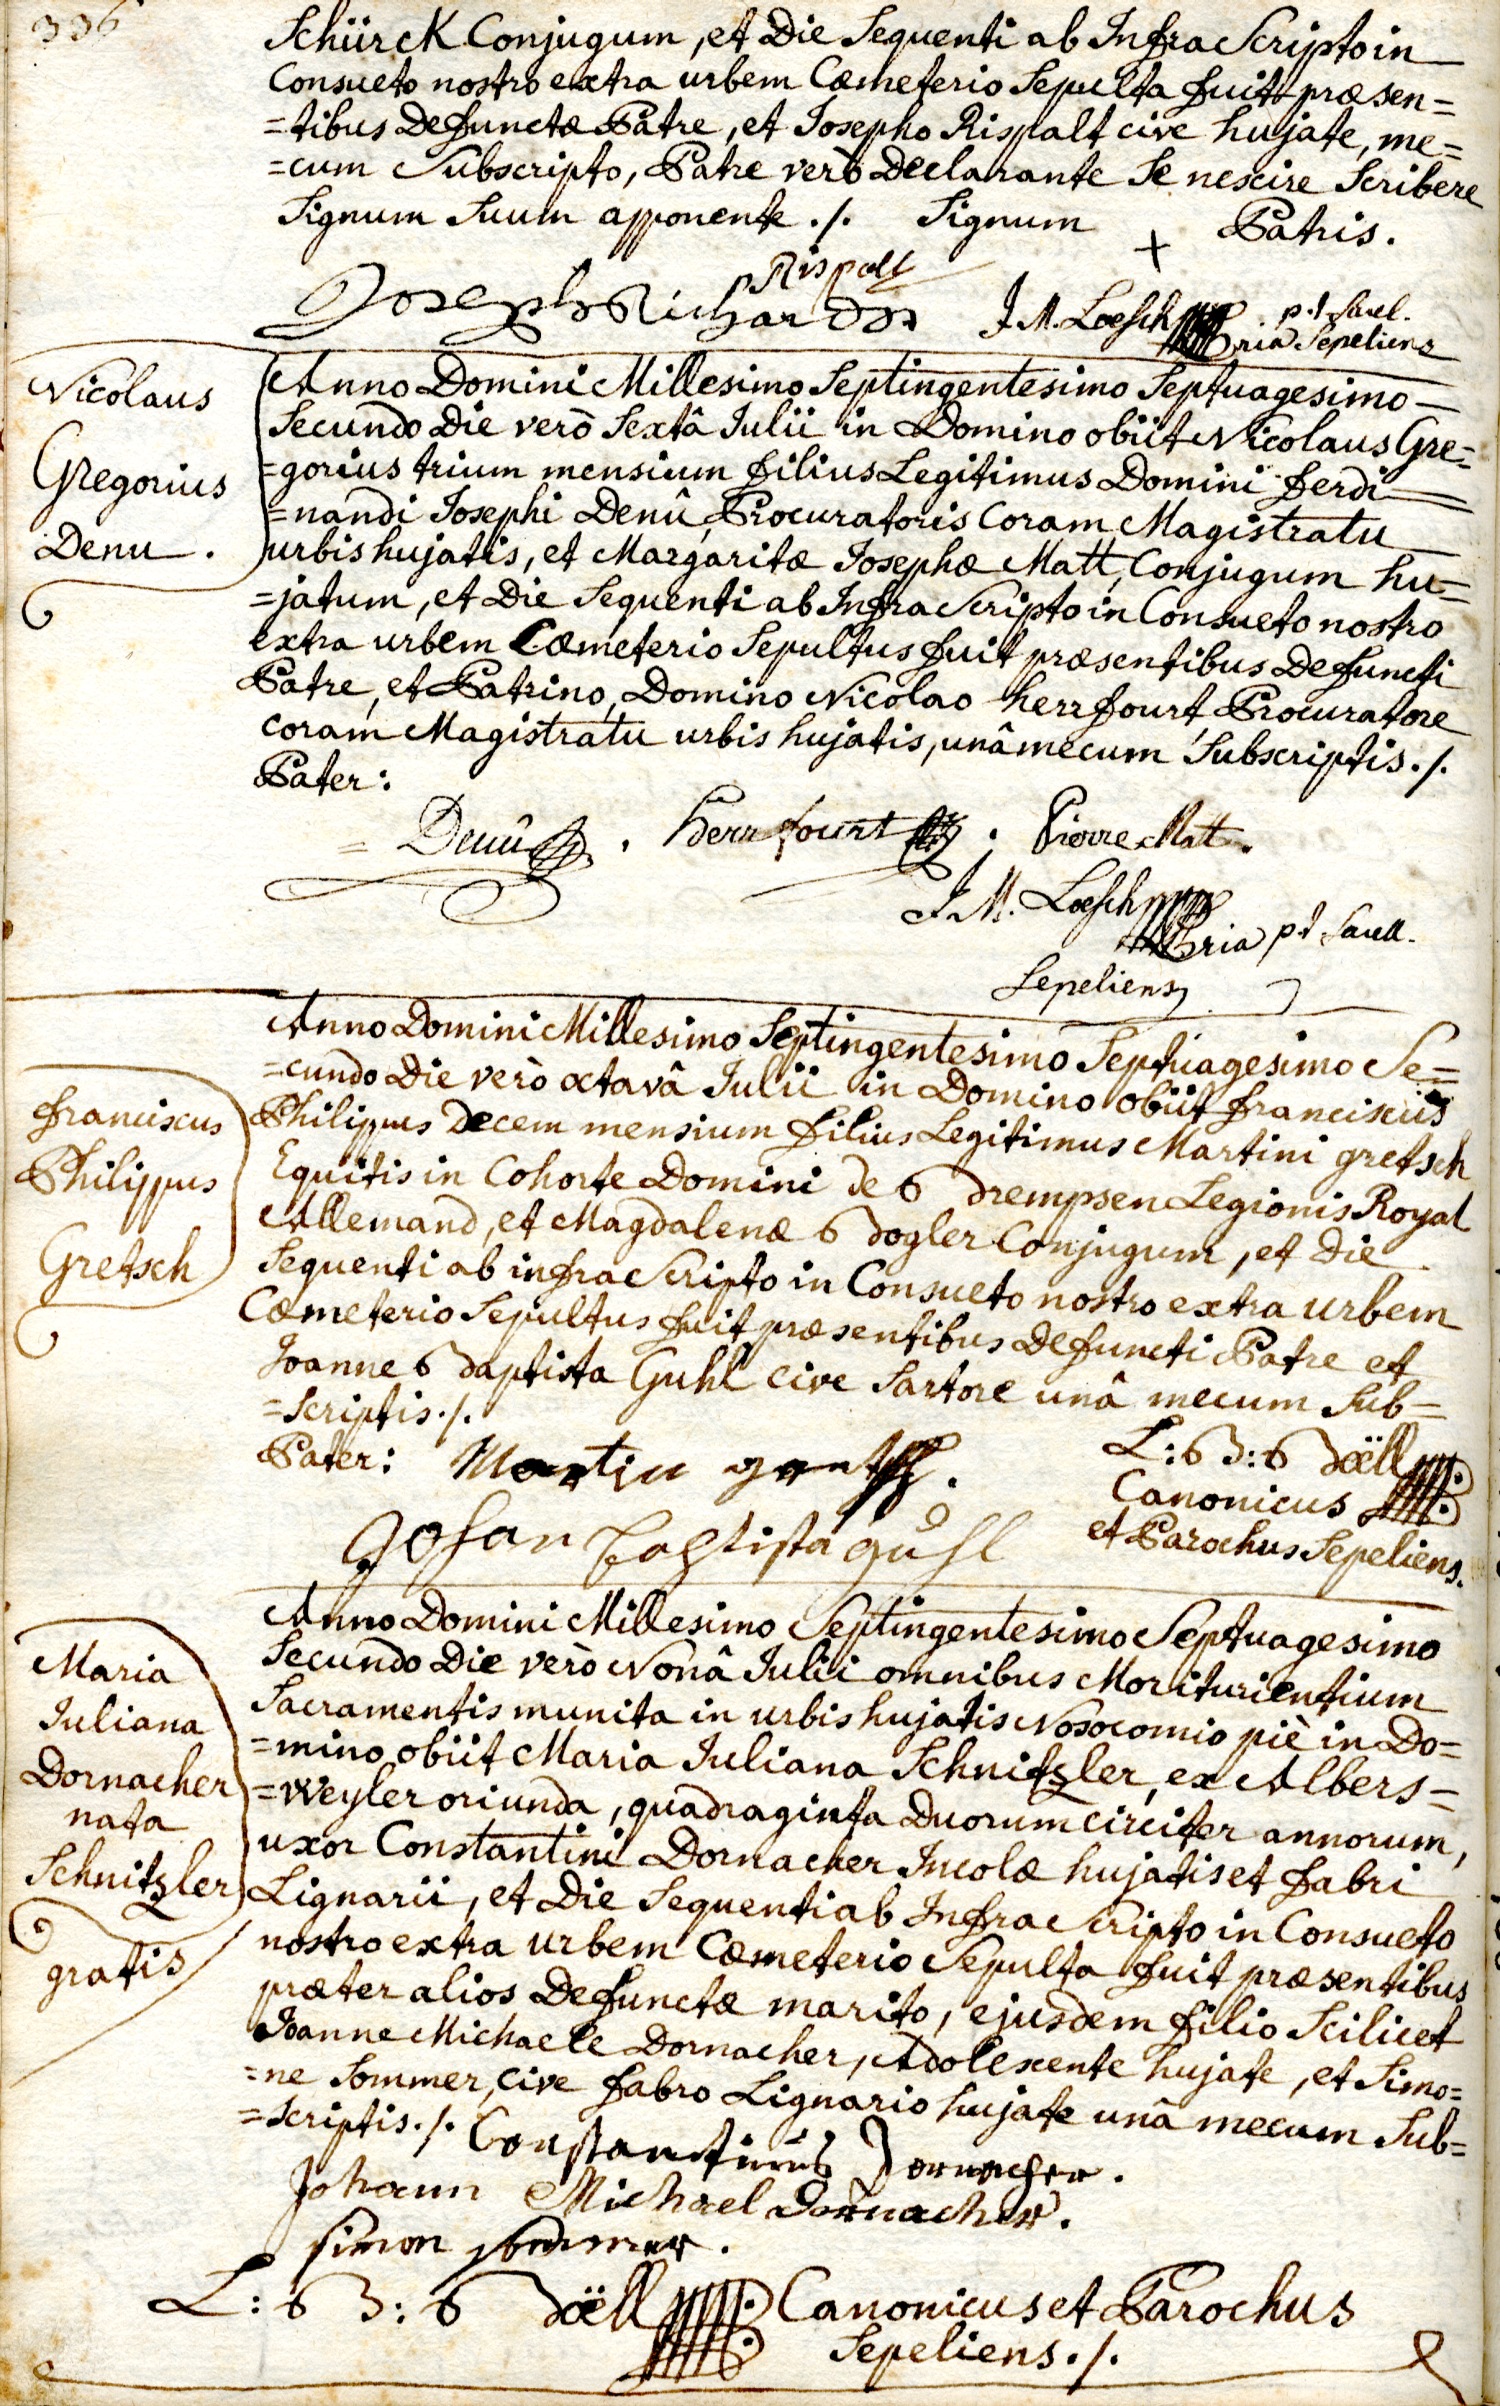 336
Schürck Conjugum, et Die Sequenti ab Infra Scripto in
Consueto nostro extra urbem Cæmeterio Sepulta fuit præsen=
=tibus Defunctæ Patre, et Josepho Rispalt cive hujate, me=
=cum Subscripto, Patre verò Declarante Se nescire Scribere
Signum Suum apponente ./. Signum + Patris.
Rispalt
Joseph Richard
J. M. Loesch p.t. Sacel.
Sepeliens
Nicolaus
Gregorius
Denu.
Anno Domini Millesimo Septingentesimo Septuagesimo
Secundo Die verò Sextâ Julii in Domino obiit Nicolaus Gre=
=gorius trium mensium filius Legitimus Domini ferdi=
=nandi Josephi Denû, Procuratoris Coram Magistratu
urbis hujatis, et Margaritæ Josephæ Matt, Conjugum hu=
=jatum, et Die Sequenti ab Infra Scripto in Consueto nostro
extra urbem Cæmeterio Sepultus fuit præsentibus Defuncti
Patre, et Patrino, Domino Nicolao herrfourt, Procuratore
coram Magistratu urbis hujatis, unâ mecum Subscriptis ./.
Pater:
= Denû . herrfourt . Pierre Matt.
J. M. Loesch
p.t. Sacell.
Sepeliens
Franciscus
Philippus
Gretsch
Anno Domini Millesimo Septingentesimo Septuagesimo Se=
=cundo Die verò octavâ Julii in Domino obiit franciscus
Philippus Decem mensium filius Legitimus Martini gretsch
Equitis in Cohorte Domini de Brempsen Legionis Royal
Allemand, et Magdalenæ Bogler Conjugum, et Die
Sequenti ab infra Scripto in Consueto nostro extra urbem
Cæmeterio Sepultus fuit præsentibus Defuncti Patre et
Joanne Baptista Guhl cive Sartore unâ mecum Sub=
=scriptis ./.
Pater: Martin gretsch.
Johan Baptista guhl
L: B: Böell
Canonicus
et Parochus Sepeliens.
Maria
Juliana
Dornacher
nata
Schnitzler
gratis
Anno Domini Millesimo Septingentesimo Septuagesimo
Secundo Die verò Nonâ Julii omnibus Moriturientium
Sacramentis munita in urbis hujatis Nosocomio piè in Do=
=mino obiit Maria Juliana Schnitzler, ex Albers=
=weyler oriunda, quadraginta Duorum circiter annorum,
uxor Constantini Dornacher Incolæ hujatis et fabri
Lignarii, et Die Sequenti ab Infra Scripto in Consueto
nostro extra urbem Cæmeterio Sepulta fuit præsentibus
præter alios Defunctæ marito, ejusdem filio Scilicet
Joanne Michaele Dornacher, Adolescente hujate, et Simo=
=ne Sommer, cive fabro Lignario hujate unâ mecum Sub=
=scriptis ./. Constantinus Dornacher.
Johann Michael Dornacher.
simon sommer.
L: B: Böell Canonicus et Parochus
Sepeliens ./.